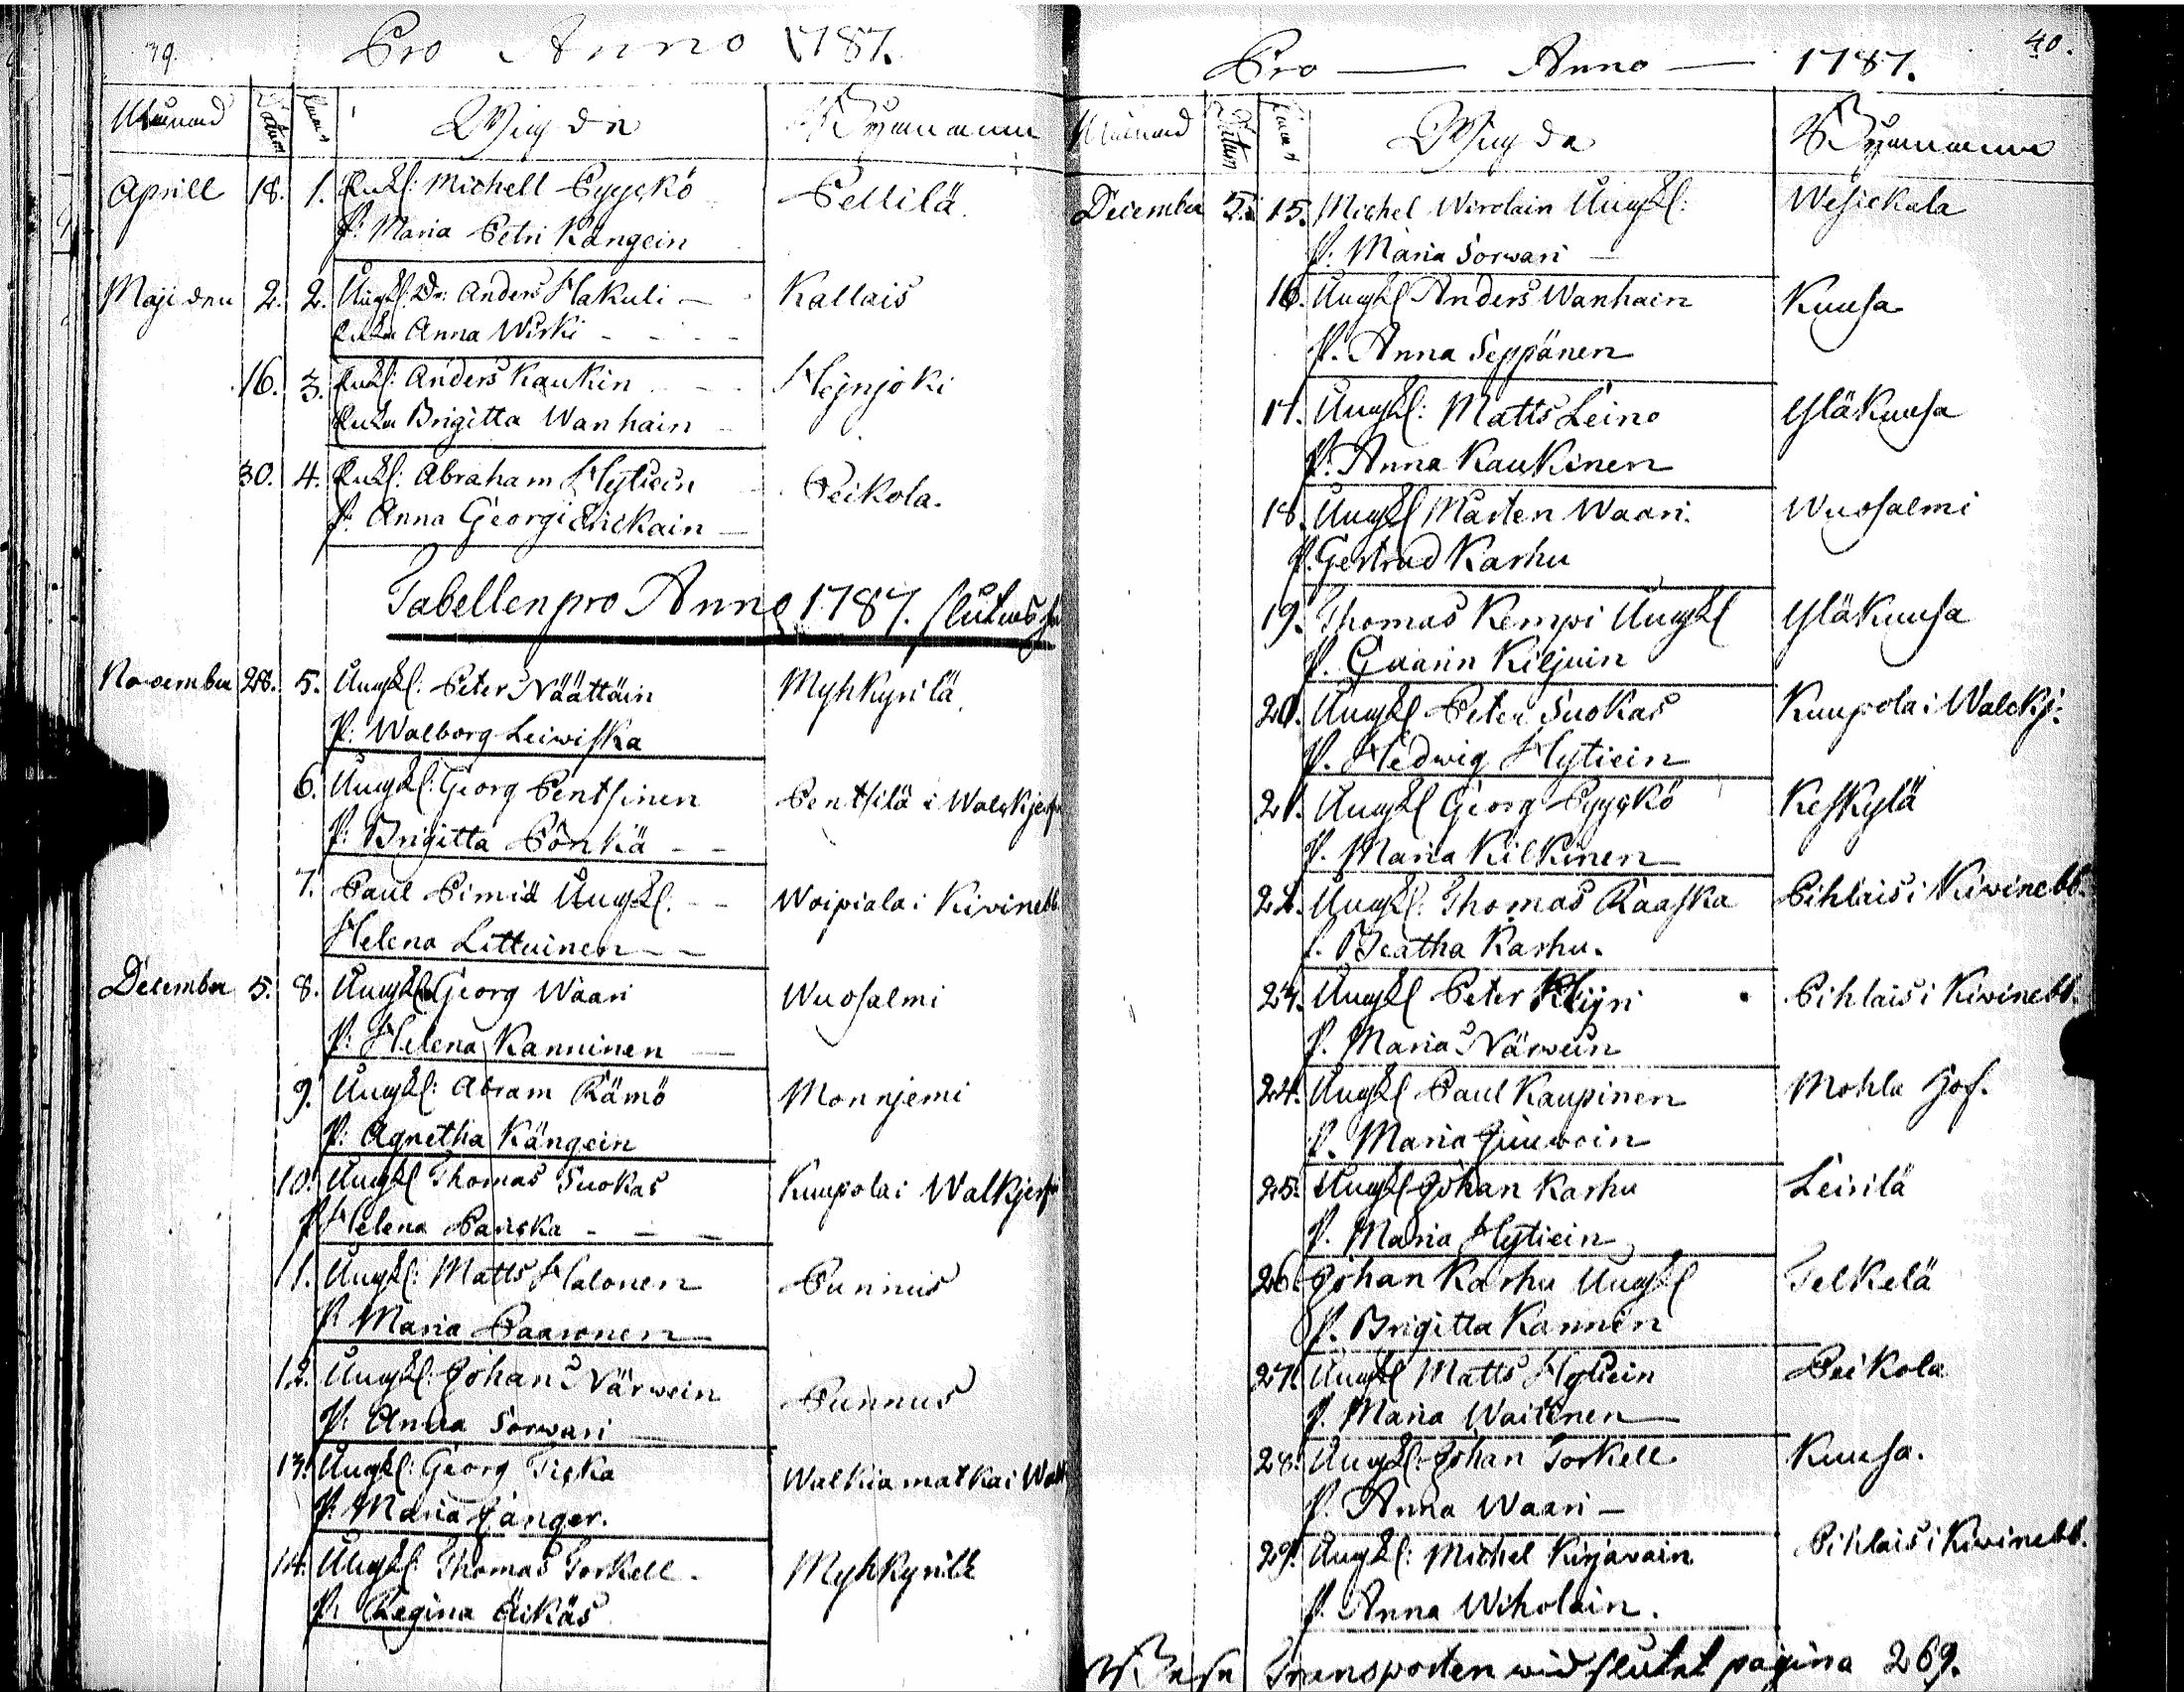 39.
Pro Anno 1787.
Månad Datum Wigde Byarnamn
Aprill 18. 1. Enkl: Michell Pyyckö Pellilä
P: Maria Petri Kängein
Maji den 2. 2. Ungkl: Dr: Anders Hakuli Kallais
Enka Anna Wirki
16. 3. Enkl: Anders Kaukin Hejnjoki
Enka Brigitta Wanhain
30. 4. Enkl: Abraham Hytiein Peikola.
P: Anna Georgi
Tabellen pro Anno 1787. slutas
November 28. 5. Ungkl: Peter Näättäin Myhkyrilä
P: Walborg Leiwiska
6. Ungkl: Georg Pentsinen Pentsilä i Walckjerf
P: Brigitta Pönkä
7. Paul Pimiä Ungkl: Woipiala i Kivinebb
Helena Littuinen
December 5. 8. Ungkl Georg Waari Wuosalmi
P: Helena Kanninen
9. Ungkl: Abram Rämö Monnjemi
P: Agnetha Kängein
10. Ungkl Thomas Suokas Kuupola i Walkjerf
P Helena Parska
11. Ungkl: Matts Halonen Punnus
P: Maria Paasonen
12. Ungkl: Johan Närwein Punnus
P: Anna Sorwari
13. Ungkl: Georg Ticka Walkiamatka i Walk
P: Maria Jänger.
14. Ungkl: Thomas Torkell Myhkyrilä
P: Regina Äikäs
40.
Pro Anno 1787.
Månad Datum Wigda Byarnamn
December 5. 15. Michel Wirolain Ungkl: Wesickala
P: Maria Sorwari
16. Ungkl Anders Wanhain Kuusa
P. Anna Seppänen
17. Ungkl: Matts Leino Yläkuusa
P: Anna Kaukinen
18. Ungkl Mårten Waari. Wuosalmi
P. Gertrud Karhu
19. Thomas Kempi Ungkl Yläkuusa
P. Caarin Kiljuin
20. Ungkl Peter Suokas Kuupola i Walckj:
P. Hedwig Hytiein
21. Ungkl Georg Pyyckö Keskylä
P. Maria Kilkinen
22. Ungkl: Thomas Raaska Pihlais i Kivinebb.
P. Beatha Karhu.
23. Ungkl Peter Pihlais i Kivinebb.
P. Maria Närwein
24. Ungkl Paul Kaupinen Mohla Hof.
P. Maria
25. Ungkl Johan Karhu Leinilä
P. Maria Hytiein
26. Johan Karhu Ungkl Telkelä
P. Brigitta Kannin
27. Ungkl Matts Hytiein Peikola
P. Maria Waittinen
28. Ungkl: Johan Torkell Kuusa.
P. Anna Waari
29. Ungkl: Michel Kirjavain Pihlais i Kivinebb.
P. Anna Wiholain.
Transporten wid slutet pagina 269.